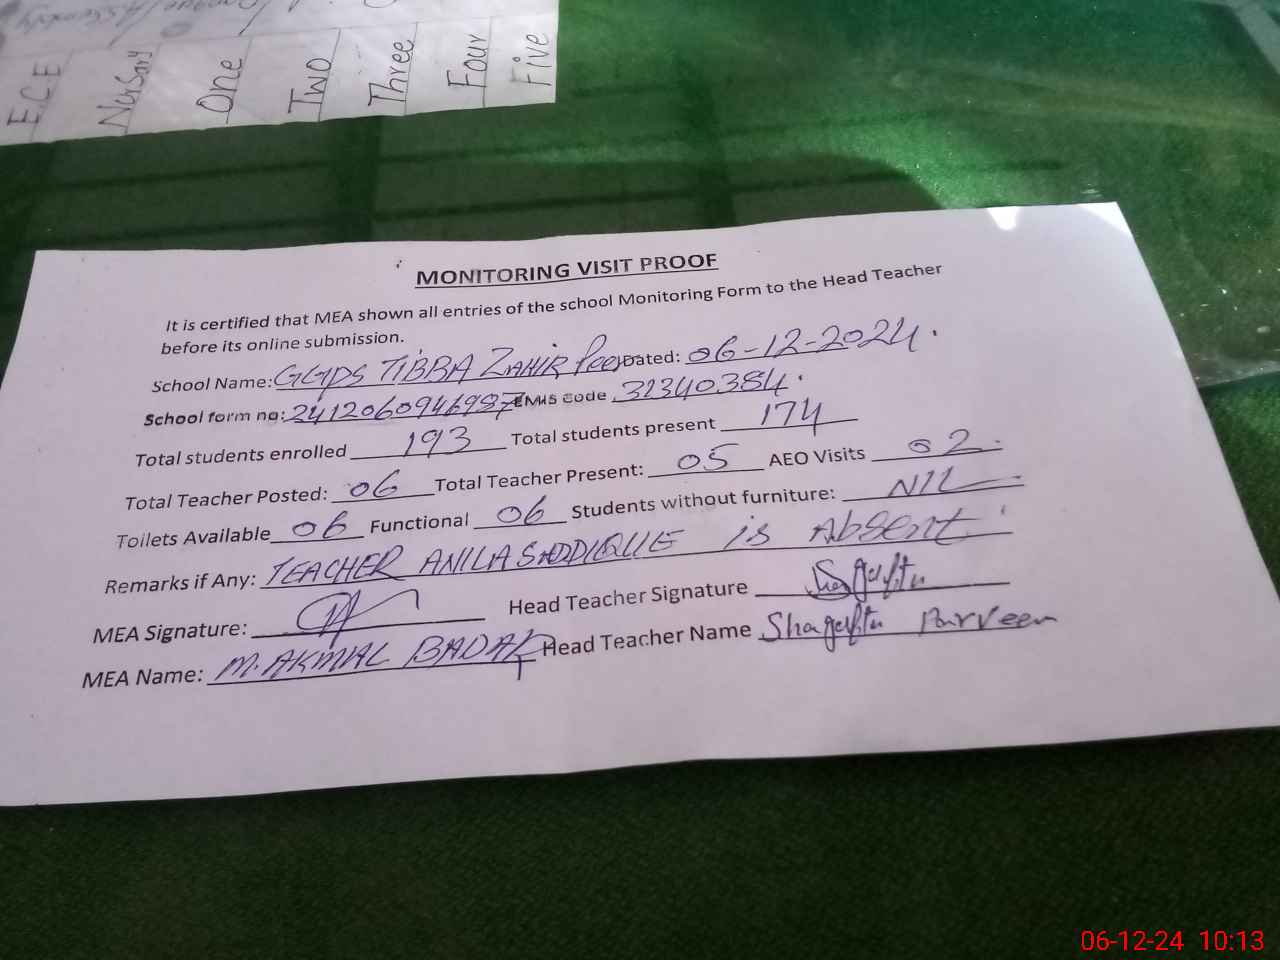 E.C.E
Nursary
One
Two
Three
Four
Five
MONITORING VISIT PROOF
It is certified that MEA shown all entries of the school Monitoring Form to the Head Teacher
before its online submission.
School Name: GGPS TIBBA ZAHIR Peer Dated: 06-12-2024.
School form no: 2412060946987 EMIS Code 31340384.
Total students enrolled 193 Total students present 174
Total Teacher Posted: 06 Total Teacher Present: 05 AEO Visits 02
Toilets Available 06 Functional 06 Students without furniture: NIL
Remarks if Any: TEACHER ANILA SIDDIQUE is Absent.
MEA Signature: Head Teacher Signature
MEA Name: M. AKMAL BADAR Head Teacher Name Shagufta Parveen
06-12-24 10:13